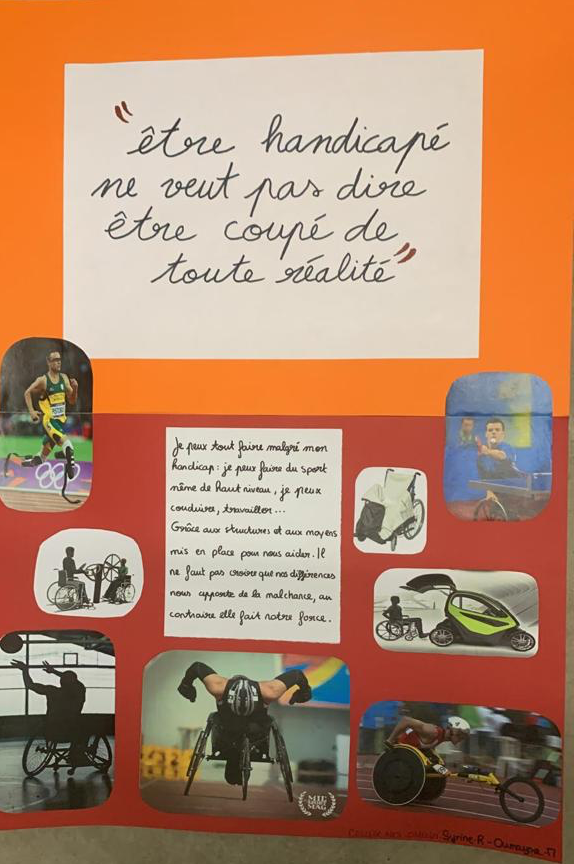 "être handicapé
ne veut pas dire
être coupé de
toute réalité"
Je peux tout faire malgré mon
handicap : je peux faire du sport
même de haut niveau, je peux
conduire, travailler...
Grâce aux structures et aux moyens
mis en place pour nous aider. Il
ne faut pas croire que nos différences
nous apporte de la malchance, au
contraire elle fait notre force.
MAG
Syrine.R - Oumayma.M